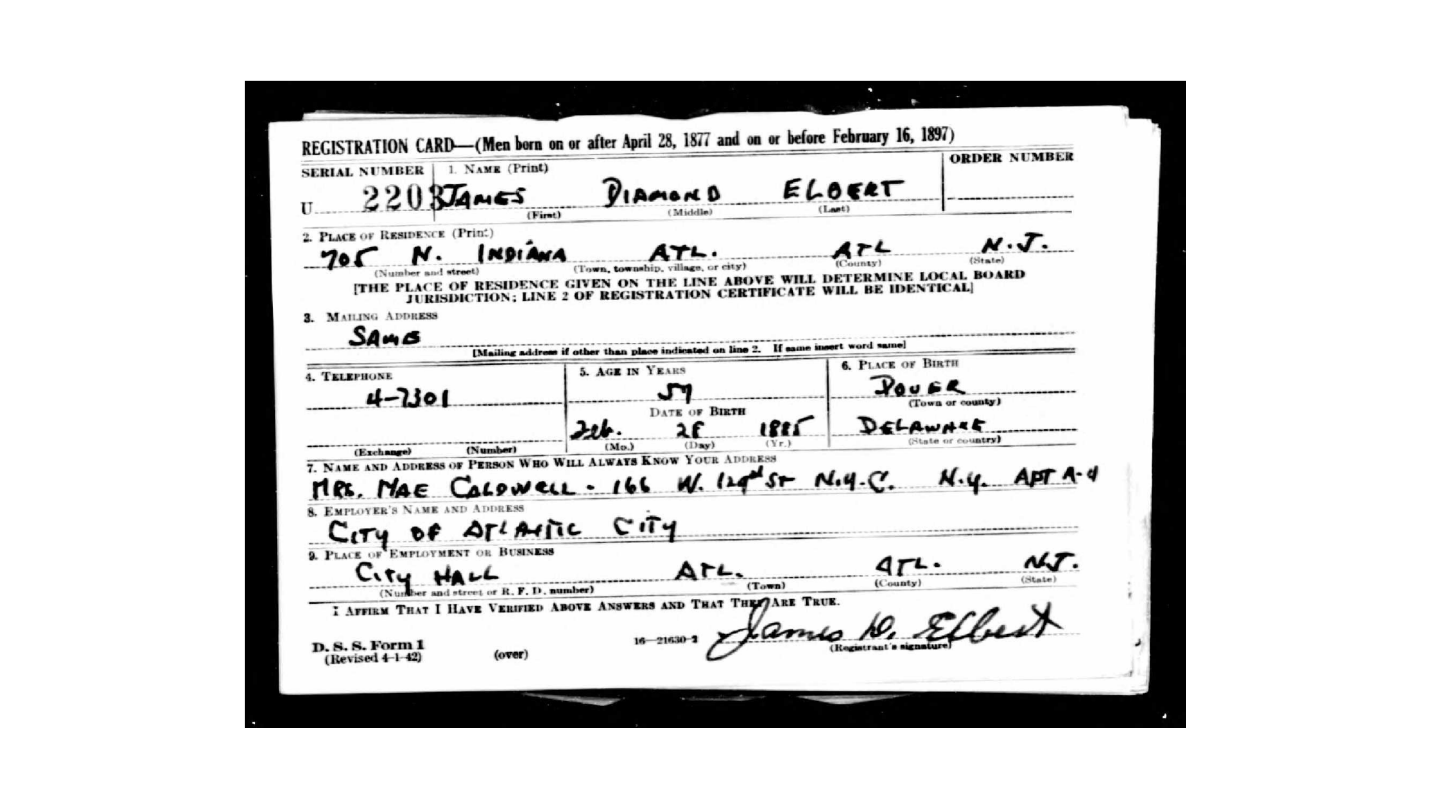 REGISTRATION CARD—(Men born on or after April 28, 1877 and on or before February 16, 1897)
SERIAL NUMBER 1. NAME (Print) ORDER NUMBER
U 2203 JAMES DIAMOND ELBERT
(First) (Middle) (Last)
2. PLACE OF RESIDENCE (Print)
705 N. INDIANA ATL. ATL N.J.
(Number and street) (Town, township, village, or city) (County) (State)
[THE PLACE OF RESIDENCE GIVEN ON THE LINE ABOVE WILL DETERMINE LOCAL BOARD
JURISDICTION; LINE 2 OF REGISTRATION CERTIFICATE WILL BE IDENTICAL]
3. MAILING ADDRESS
SAME
[Mailing address if other than place indicated on line 2. If same insert word same]
4. TELEPHONE 5. AGE IN YEARS 6. PLACE OF BIRTH
4-7301 57 DOVER
(Town or county)
DATE OF BIRTH
Feb. 28 1885 DELAWARE
(Exchange) (Number) (Mo.) (Day) (Yr.) (State or country)
7. NAME AND ADDRESS OF PERSON WHO WILL ALWAYS KNOW YOUR ADDRESS
MRS. MAE CALDWELL - 166 W. 129th ST N.Y.C. N.Y. APT A-4
8. EMPLOYER'S NAME AND ADDRESS
CITY OF ATLANTIC CITY
9. PLACE OF EMPLOYMENT OR BUSINESS
CITY HALL ATL. ATL. N.J.
(Number and street or R. F. D. number) (Town) (County) (State)
I AFFIRM THAT I HAVE VERIFIED ABOVE ANSWERS AND THAT THEY ARE TRUE.
James D. Elbert
D. S. S. Form 1 16—21630-2 (Registrant's signature)
(Revised 4-1-42) (over)